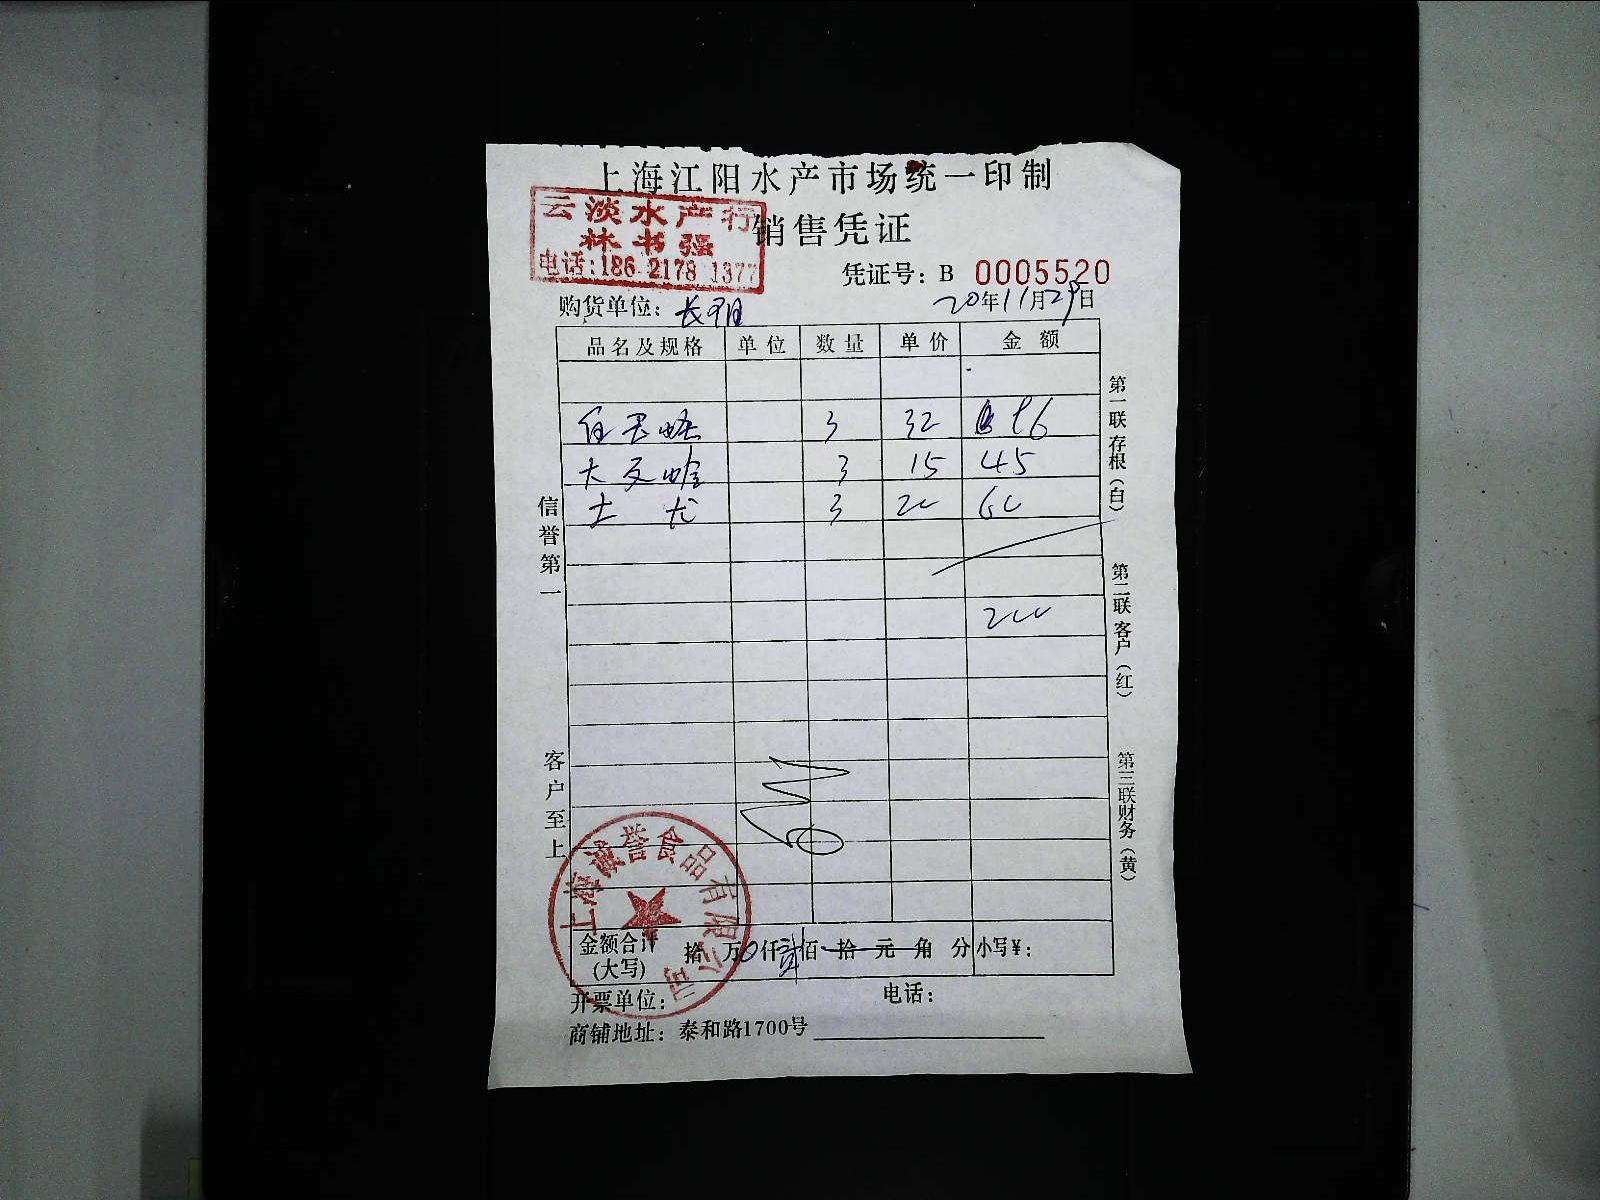 上海江阳水产市场统一印制
云淡水产行
林书强
电话:186 2178 1377
销售凭证
凭证号: B 0005520
购货单位:
20年11月29日
品名及规格 单位 数量 单价 金额
3 32 96
大 3 15 45
土 尤 3 20 60
200
信誉第一
客户至上
第一联存根(白)
第二联客户(红)
第三联财务(黄)
上海诚誉食品有限公司
金额合计(大写) 拾 万 0 仟 贰 佰 拾 元 角 分 小写¥:
开票单位: 电话:
商铺地址: 泰和路1700号